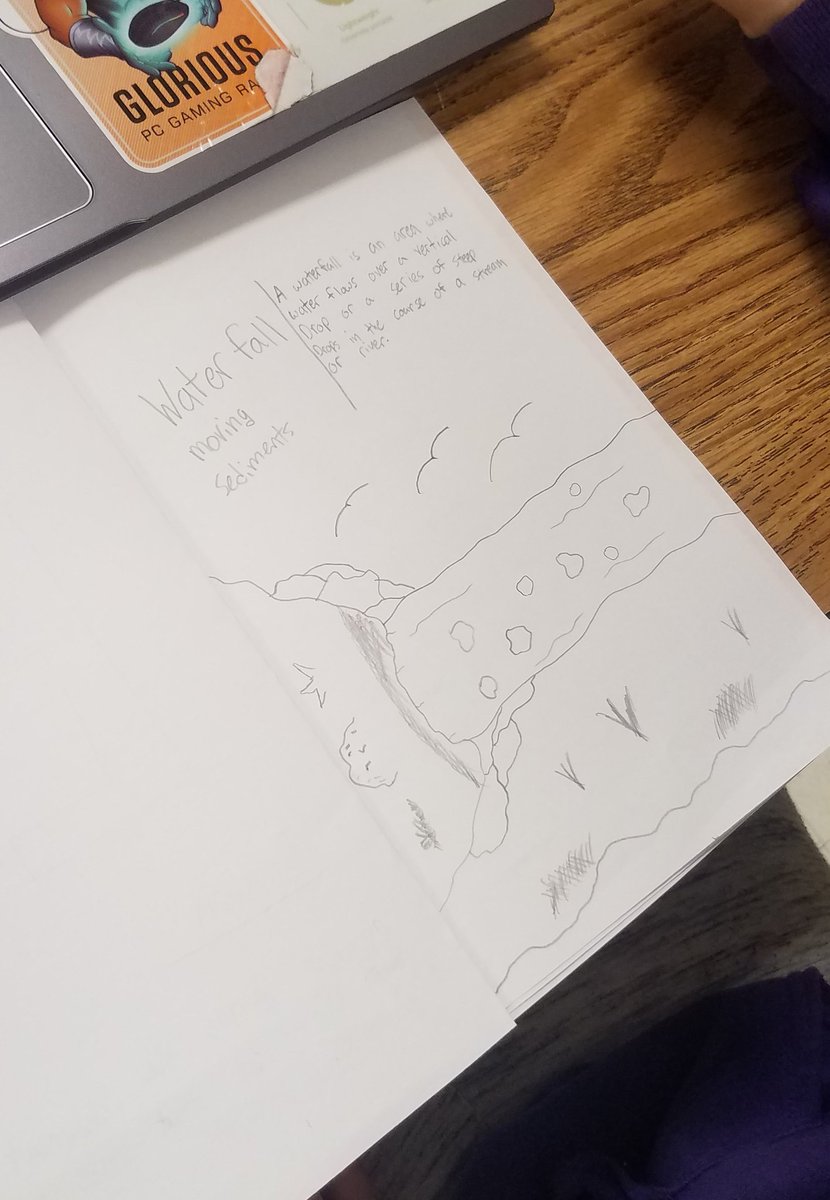 GLORIOUS
PC GAMING RA
Lightweight
Water fall
moving
Sediments
A waterfall is an area where
water flows over a vertical
Drop or a series of steep
Drops in the course of a stream
or river.